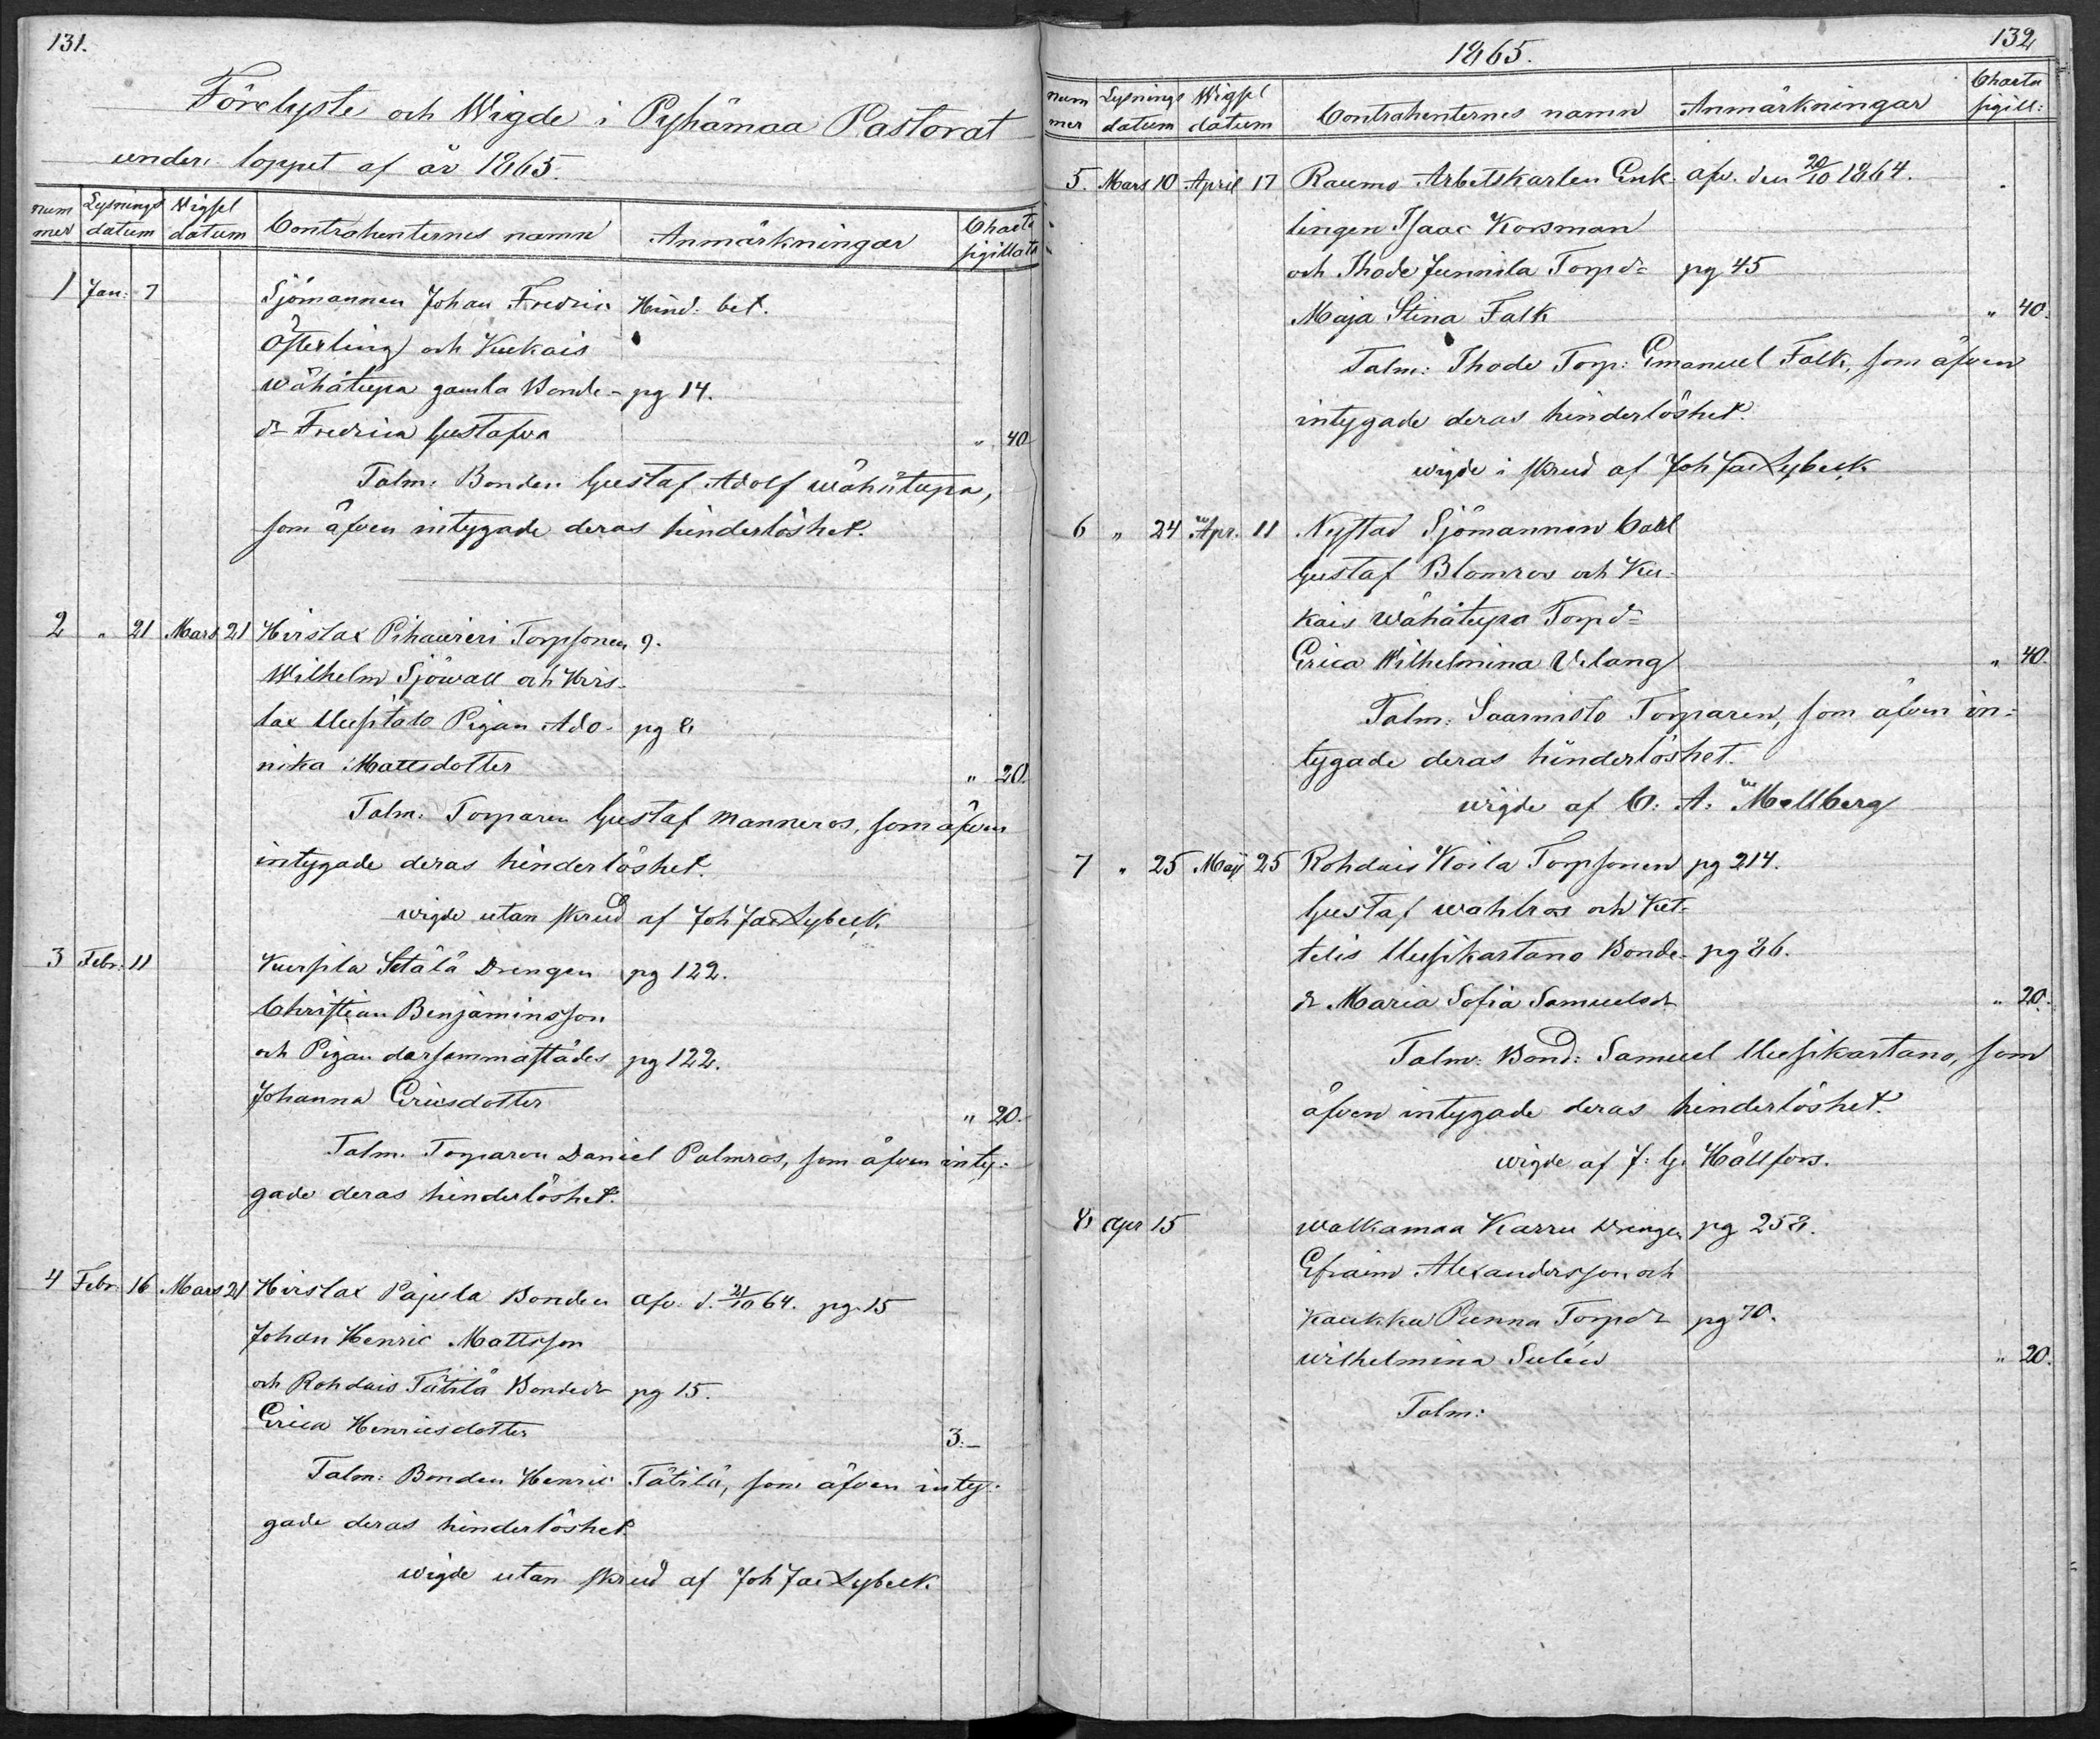 131.
Förelyste och Wigde i Pyhämaa Pastorat
under loppet af år 1865.
num mer Lysnings datum Wigsel datum Contrahenternes namn Anmärkningar Charta sigillata
1 Jan: 7 Sjömannen Johan Fredric Hind. bet.
Österling och Kukais
Wähätupa gamla Bonde- pg 14.
dr Fredrica Gustafva " 40
Talm: Bonden Gustaf Adolf Wähätupa,
som äfven intygade deras hinderlöshet.
2 " 21 Mars 21 Hirslax Pihawieri Torpsonen 9.
Wilhelm Sjöwall och Hirs-
lax Uusitalo Pigan Ado- pg 8
nika Mattsdotter " 20.
Talm: Torparen Gustaf Manneros, som äfven
intygade deras hinderlöshet.
wigde utan skrud af Joh Jac Lybeck.
3 Febr: 11 Kursila Setälä Drengen pg 122.
Christian Benjaminsson
och Pigan dersammastädes pg 122.
Johanna Ericsdotter " 20.
Talm. Torparen Daniel Palmros, som äfven inty-
gade deras hinderlöshet.
4 Febr: 16 Mars 21 Hirslax Pajula Bonden afv. d. 21/10 64. pg. 15
Johan Henric Mattsson
och Rohdais Tätilä Bondedr pg 15.
Erica Henricsdotter 3.–
Talm: Bonden Henric Tätilä, som äfven inty-
gade deras hinderlöshet
wigde utan skrud af Joh Jac Lybeck.
1865. 132
num mer Lysnings datum Wigsel datum Contrahenternes namn Anmärkningar Charta sigill:
5. Mars 10 April 17 Raumo Arbetskarlen Enk- afv. den 20/10 1864.
lingen Isaac Korsman
och Ihode Junnila Torpdr pg 45
Maja Stina Falk " 40.
Talm: Ihode Torp: Emanuel Falk, som äfven
intygade deras hinderlöshet.
wigde i skrud af Joh Jac Lybeck
6 " 24 Apr. 11 Nystad Sjömannen Carl
Gustaf Blomros och Ku-
kais Wähätupa Torpdr
Erica Wilhelmina Welang " 40.
Talm: Saaristo Torparen, som äfven in-
tygade deras hinderlöshet.
wigde af C. A. Mellberg
7 " 25 Maji 25 Rohdais Koila Torpsonen pg 214.
Gustaf Wahlros och Ket-
telis Uusikartano Bonde- pg 86.
dr Maria Sofia Samuelsdr " 20.
Talm: Bond: Samuel Uusikartano, som
äfven intygade deras hinderlöshet.
wigde af J: G. Hällfors.
8 Apr 15 Walkamaa Karru Drengen pg 258.
Efraim Alexandersson och
Kaukka Punna Torpdr pg 70.
Wilhelmina Sulén " 20.
Talm: